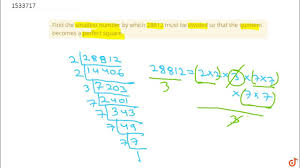 1533717
Find the smallest number by which 28812 must be divided so that the quotient
becomes a perfect square.
2 | 28812
2 | 14406
3 | 7203
7 | 2401
7 | 343
7 | 49
7 | 7
1
28812 = (2×2) × 3 × (7×7)
× (7×7)
3
3